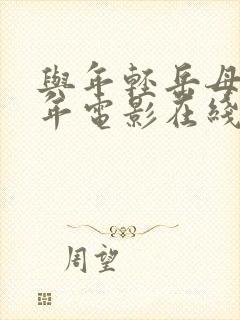 與年輕岳母
年電影在綫
周望